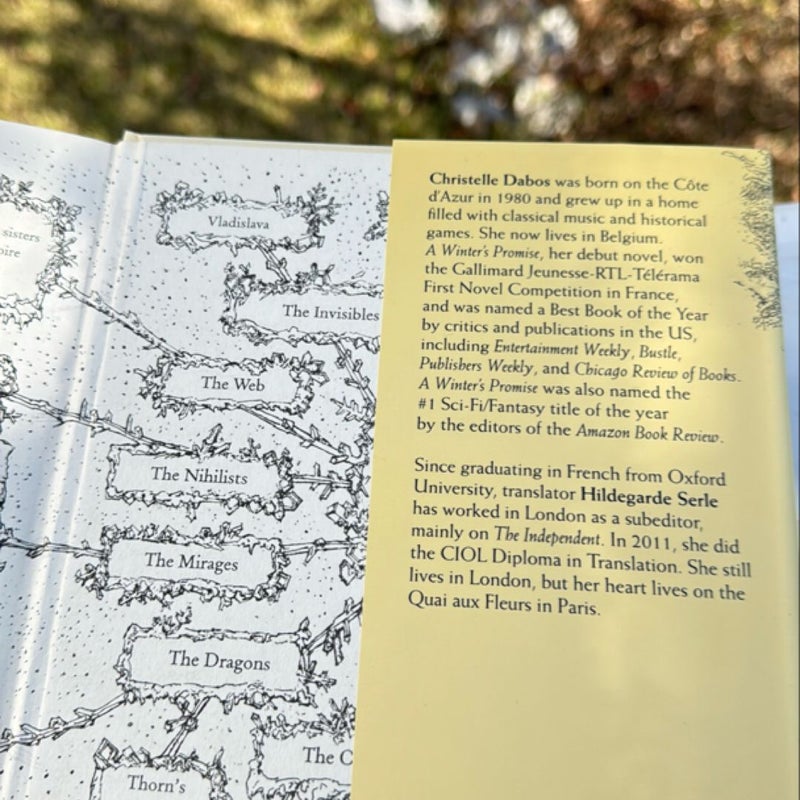 sisters
Vladislava
The Invisibles
The Web
The Nihilists
The Mirages
The Dragons
The
Thorn's
Christelle Dabos was born on the Côte
d'Azur in 1980 and grew up in a home
filled with classical music and historical
games. She now lives in Belgium.
A Winter's Promise, her debut novel, won
the Gallimard Jeunesse-RTL-Télérama
First Novel Competition in France,
and was named a Best Book of the Year
by critics and publications in the US,
including Entertainment Weekly, Bustle,
Publishers Weekly, and Chicago Review of Books.
A Winter's Promise was also named the
#1 Sci-Fi/Fantasy title of the year
by the editors of the Amazon Book Review.
Since graduating in French from Oxford
University, translator Hildegarde Serle
has worked in London as a subeditor,
mainly on The Independent. In 2011, she did
the CIOL Diploma in Translation. She still
lives in London, but her heart lives on the
Quai aux Fleurs in Paris.